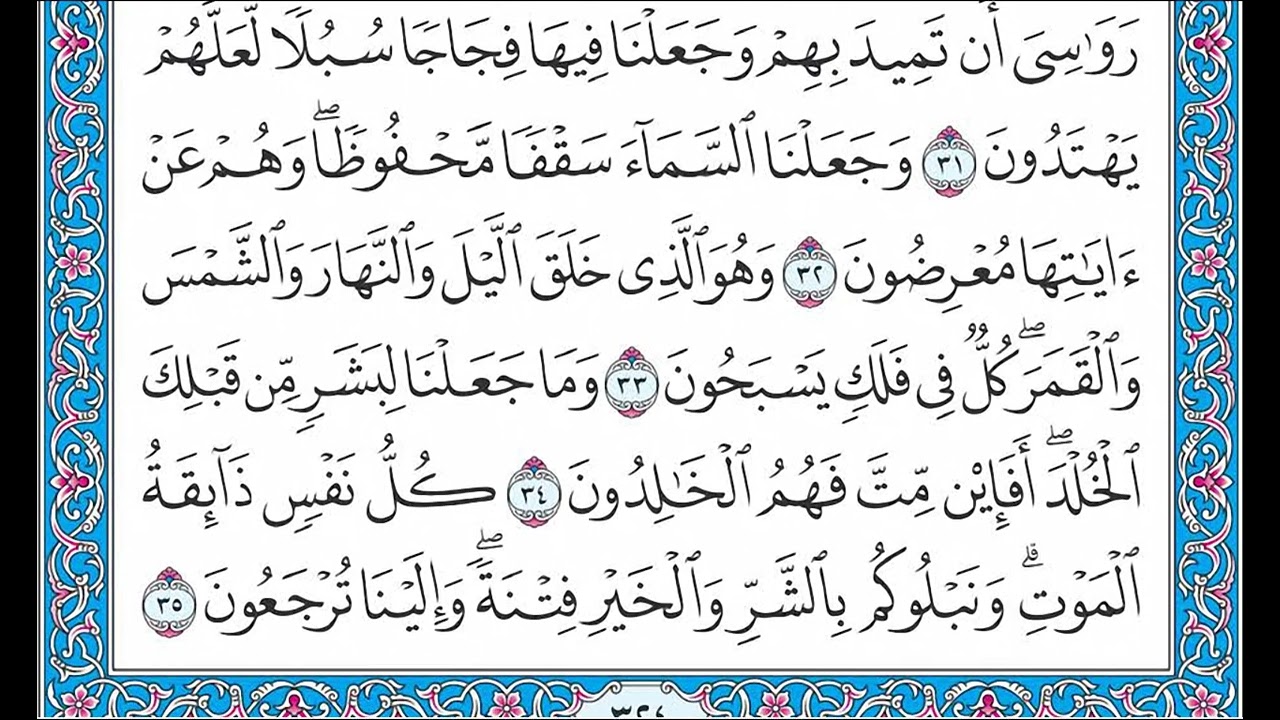 رَوَٰسِىَ أَن تَمِيدَ بِهِمْ وَجَعَلْنَا فِيهَا فِجَاجًا سُبُلًا لَّعَلَّهُمْ
يَهْتَدُونَ ٣١ وَجَعَلْنَا ٱلسَّمَآءَ سَقْفًا مَّحْفُوظًا ۖ وَهُمْ عَنْ
ءَايَٰتِهَا مُعْرِضُونَ ٣٢ وَهُوَ ٱلَّذِى خَلَقَ ٱلَّيْلَ وَٱلنَّهَارَ وَٱلشَّمْسَ
وَٱلْقَمَرَ ۖ كُلٌّ فِى فَلَكٍ يَسْبَحُونَ ٣٣ وَمَا جَعَلْنَا لِبَشَرٍ مِّن قَبْلِكَ
ٱلْخُلْدَ ۖ أَفَإِيْن مِّتَّ فَهُمُ ٱلْخَٰلِدُونَ ٣٤ كُلُّ نَفْسٍ ذَآئِقَةُ
ٱلْمَوْتِ ۗ وَنَبْلُوكُم بِٱلشَّرِّ وَٱلْخَيْرِ فِتْنَةً ۖ وَإِلَيْنَا تُرْجَعُونَ ٣٥